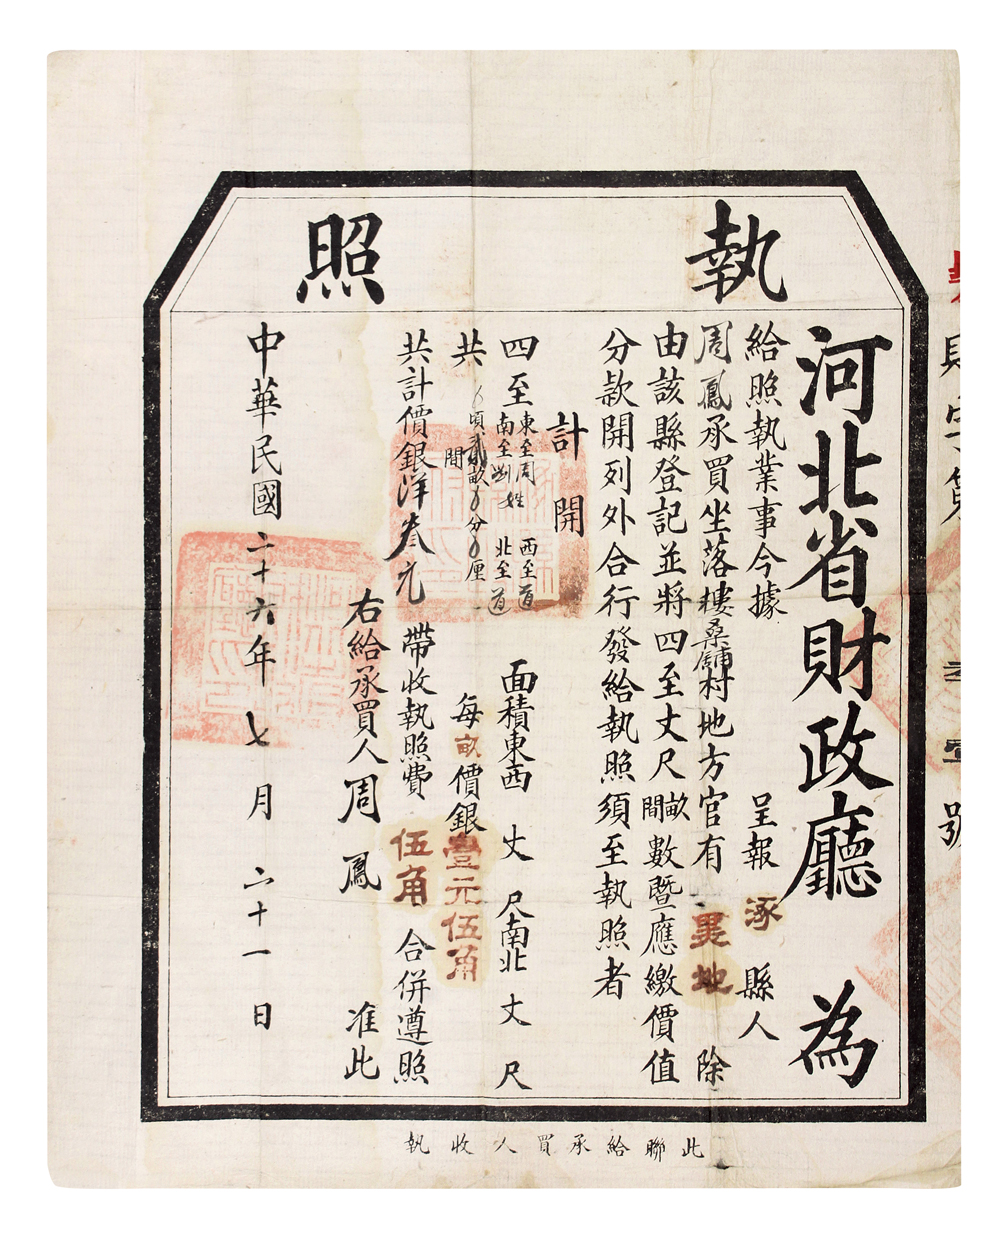 執照
河北省財政廳 為
給照執業事今據 呈報涿縣人
周鳳承買坐落樓桑舖村地方官有黑地 除
由該縣登記並將四至丈尺畝間數暨應繳價值
分款開列外合行發給執照須至執照者
計開
四至 東至周 南至劉姓 西至道 北至道 面積東西 丈 尺南北 丈 尺
共 頃貳畝 分 厘 間 每畝價銀壹元伍角
共計價銀洋叁元 帶收執照費伍角 合併遵照
右給承買人周鳳 准此
中華民國二十六年七月二十一日
此聯給承買人收執